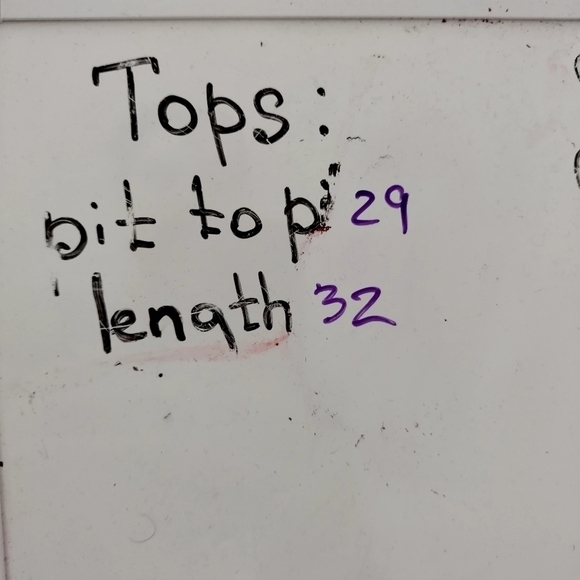 Tops:
pit to pi 29
length 32